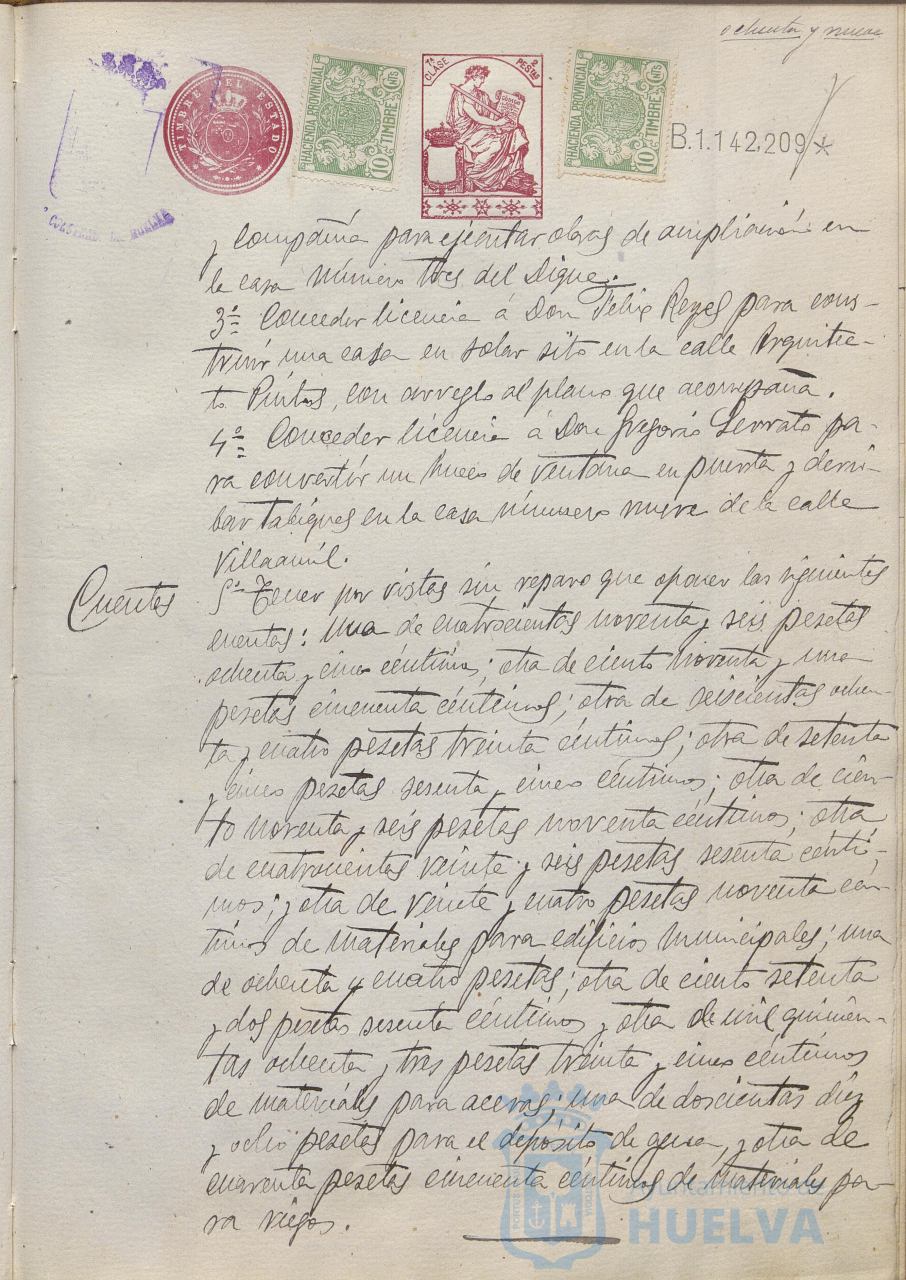 ochenta y nueve
TIMBRE DEL ESTADO
HACIENDA PROVINCIAL
TIMBRE
10 CNTS
7ª CLASE
2 PESTAS
HACIENDA PROVINCIAL
TIMBRE
10 CNTS
B.1.142,209*
HUELVA
y Compañia para ejecutar obras de ampliación en
la casa número tres del Dique.
3º Conceder licencia á Don Felix Reyes para cons-
truir una casa en solar sito en la calle Arquitec-
to Pintos, con arreglo al plano que acompaña.
4º Conceder licencia á Don Gregorio Serrato pa-
ra convertir un hueco de ventana en puerta y derri-
bar tabiques en la casa número nueve de la calle
Villaamil.
Cuentas
5º Tener por vistas sin reparo que oponer las siguientes
cuentas: una de cuatrocientas noventa y seis pesetas
ochenta y cinco céntimos; otra de ciento noventa y una
pesetas cincuenta céntimos; otra de seiscientas ochen-
ta y cuatro pesetas treinta céntimos; otra de setenta
y cinco pesetas sesenta y cinco céntimos; otra de cien-
to noventa y seis pesetas noventa céntimos; otra
de cuatrocientas veinte y seis pesetas sesenta cénti-
mos; y otra de veinte y cuatro pesetas noventa cén-
timos de materiales para edificios municipales; una
de ochenta y cuatro pesetas; otra de ciento setenta
y dos pesetas sesenta céntimos y otra de mil quinien-
tas ochenta y tres pesetas treinta y cinco céntimos
de materiales para aceras; una de doscientas diez
y ocho pesetas para el depósito de agua, y otra de
cuarenta pesetas cincuenta céntimos de materiales pa-
ra riegos.
Ayuntamiento de
HUELVA